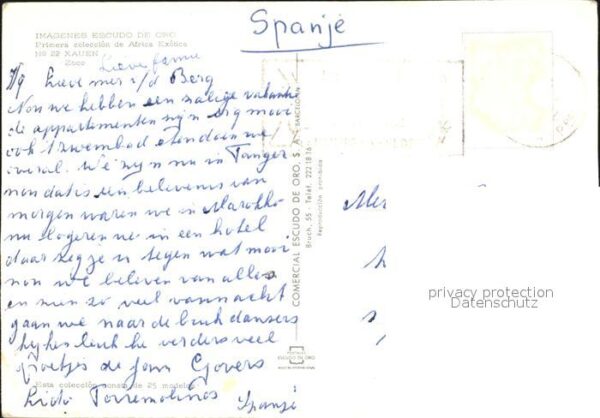 Spanje
IMAGENES ESCUDO DE ORO
Primera selección de Africa Exótica
Nº 22 XAUEN
Zoco
Lieve fam
Lieve mer v/d Berg
Nou we hebben een zalige vakantie
de appartementen zijn erg mooi
ook 't zwembad eten doen we
overal. We zijn nu in Tanger
nou dat is een belevenis van
morgen waren we in Marokko
nu logeren we in een hotel
daar zeg je u tegen wat mooi
nou we beleven van alles
en zien zo veel vannacht
gaan we naar de buikdansers
kijken leuk he verders veel
groetjes de fam Govers
Lido Torremolinos Spanje
Esta colección consta de 25 modelos
COMERCIAL ESCUDO DE ORO, S. A. - BARCELONA
Bruch, 55 - Telef. 222 18 16
Reproducción prohibida
POSTALES
ESCUDO DE ORO
Mer
privacy protection
Datenschutz